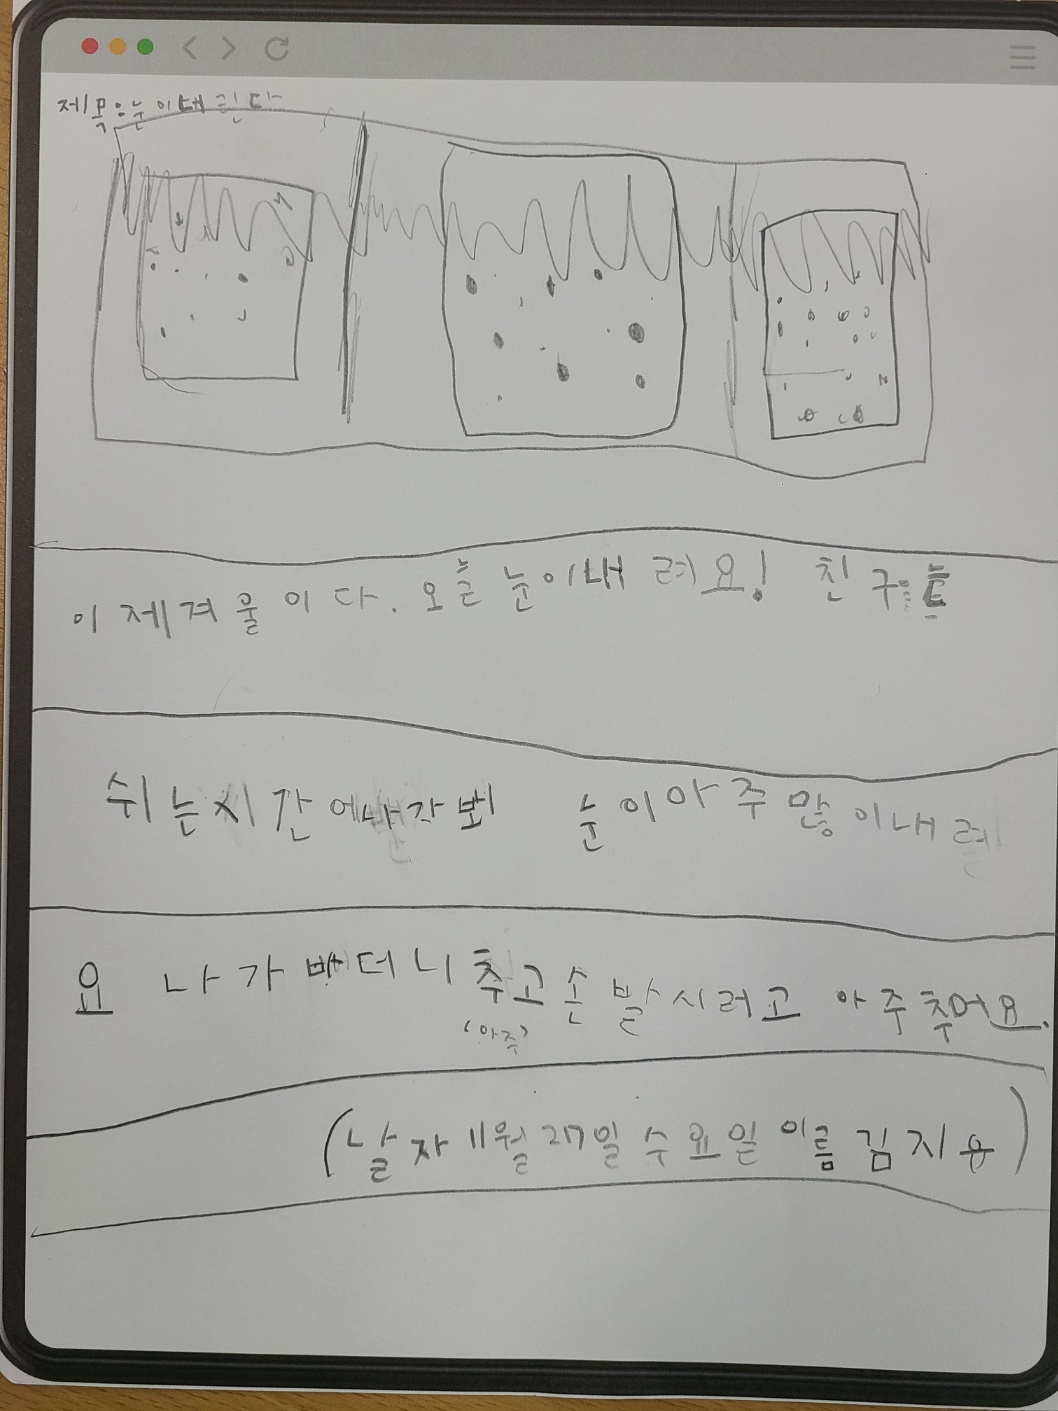 제목은눈이내린다
이제겨울이다. 오늘 눈이내려요! 친구들
쉬는시간에 눈이아주많이내려
요 나가 봤더니 춥고손발시려고 아주추어요.
(아주)
(날자 11월 27일 수요일 이름 김지용)